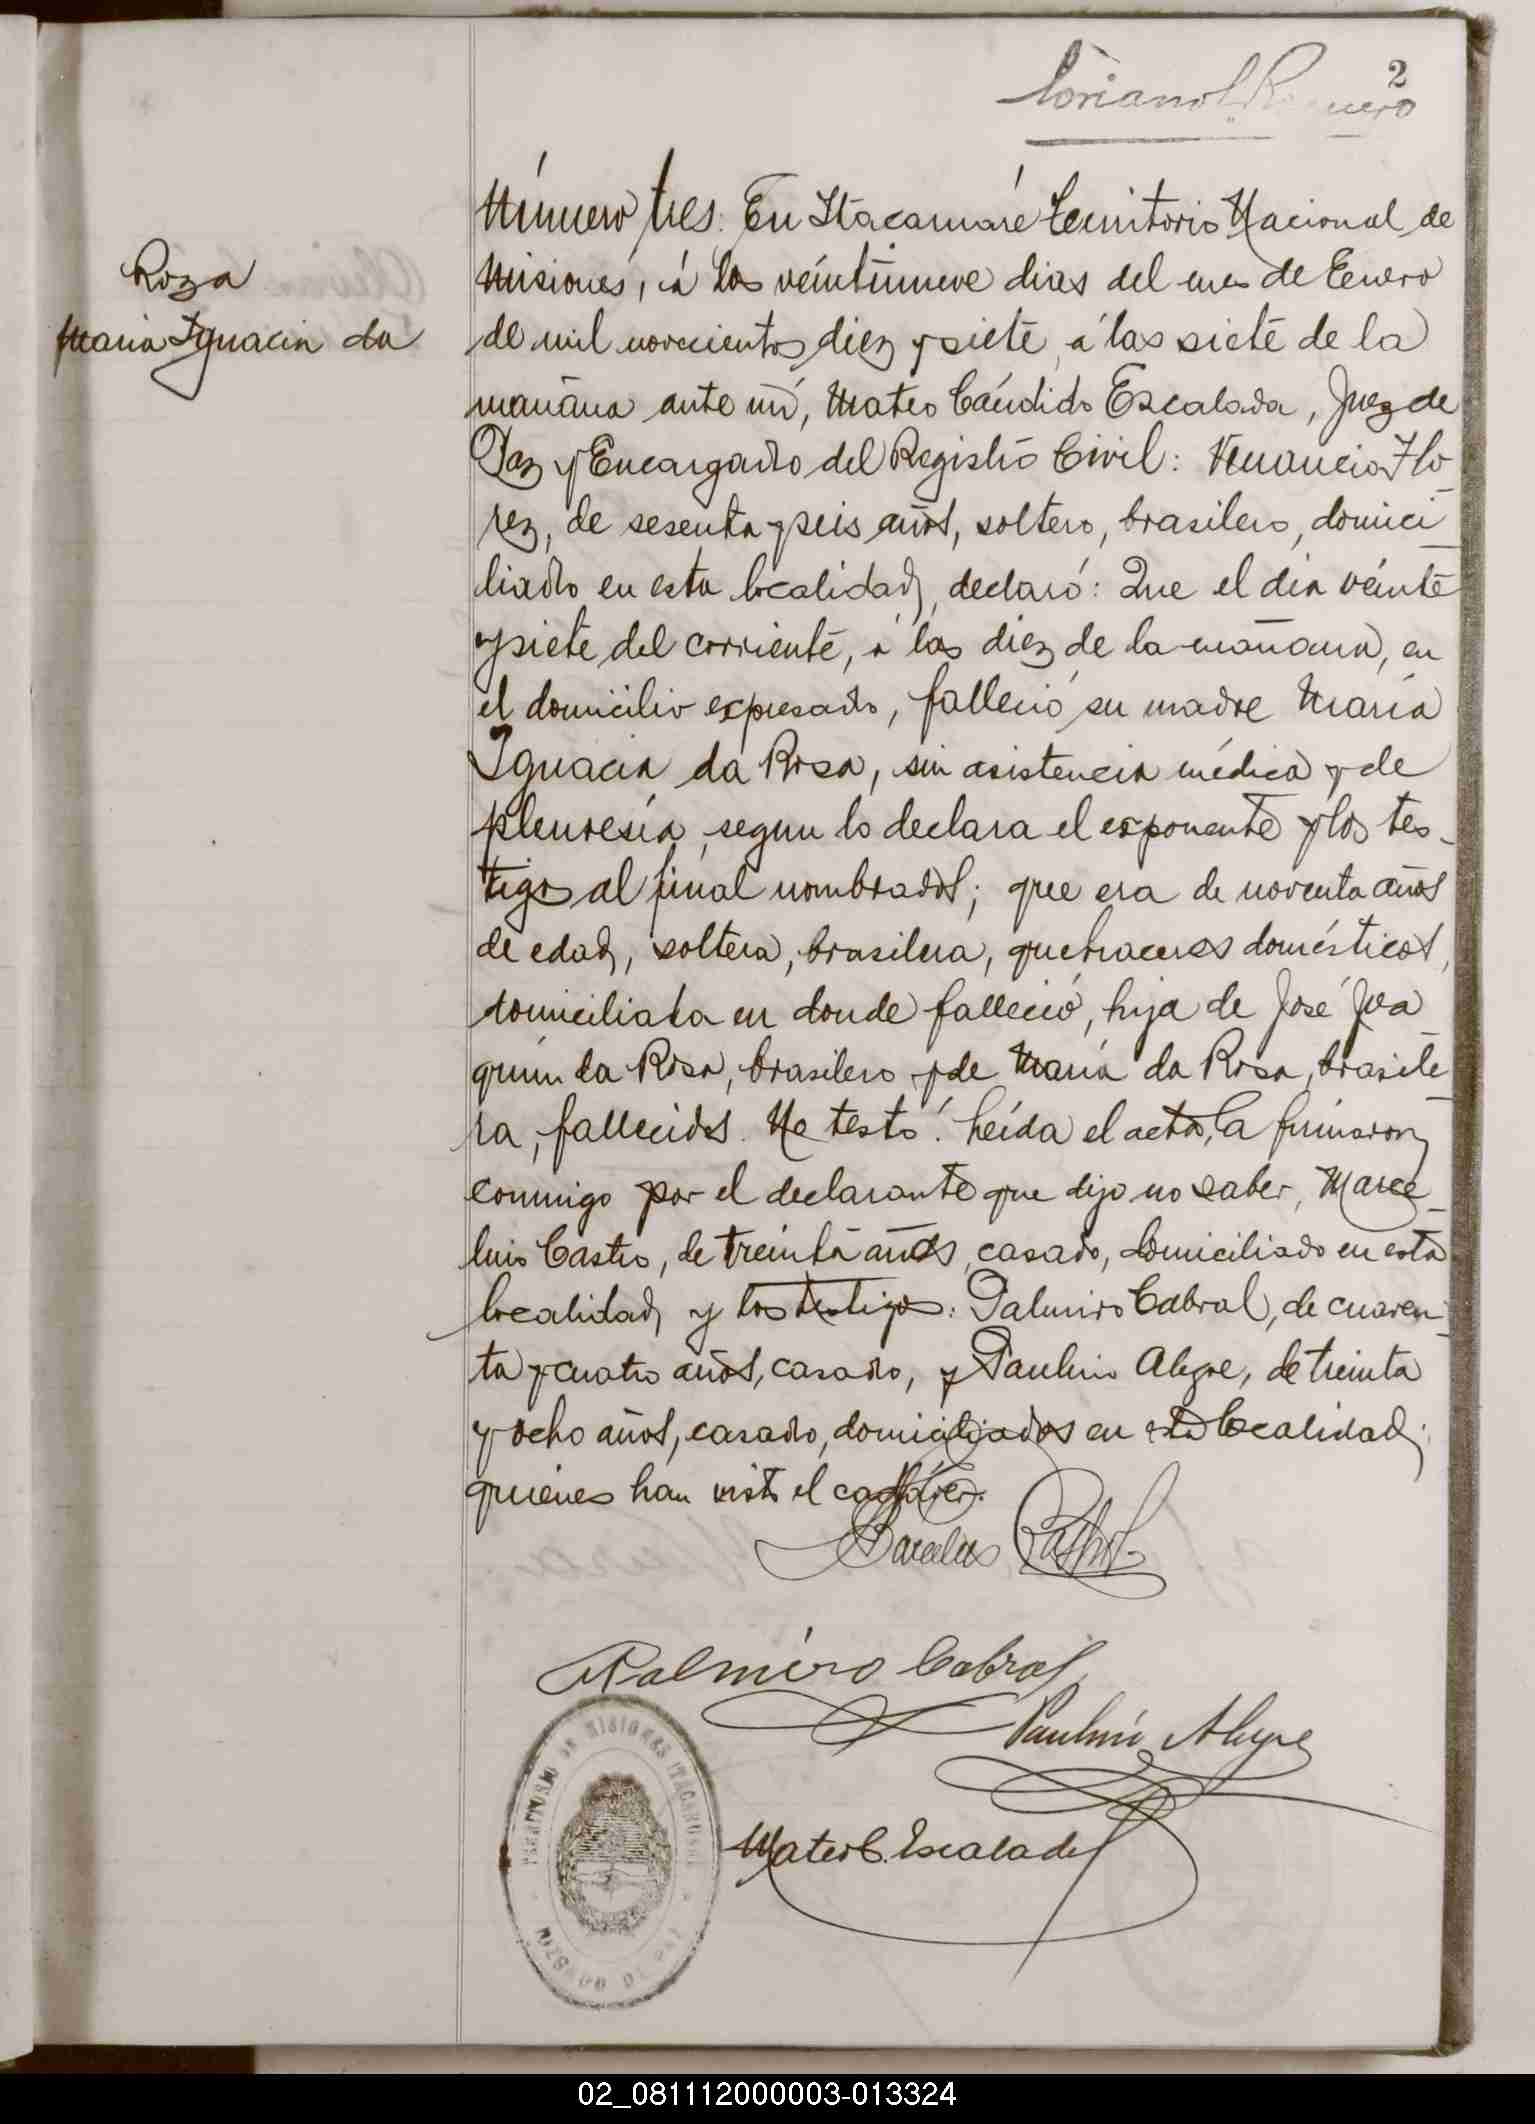 2
Roza
Maria Ignacia da
Número tres: En Itacaruaré Territorio Nacional de
Misiones, á los veintinueve dias del mes de Enero
de mil novecientos diez y siete, á las siete de la
mañana ante mi, Mateo Cándido Escalada, Juez de
Paz y Encargado del Registro Civil: Venancio Flo
rez, de sesenta y seis años, soltero, brasilero, domici
liado en esta localidad, declaró: Que el dia veinte
y siete del corriente, á las diez de la mañana, en
el domicilio expresado, falleció su madre María
Ignacia da Rosa, sin asistencia médica y de
pleuresía, segun lo declara el exponente y los tes-
tigos al final nombrados; que era de noventa años
de edad, soltera, brasilera, quehaceres domésticos,
domiciliada en donde falleció, hija de José Joa
quin da Rosa, brasilero y de María da Rosa, brasile
ra, fallecidos. No testó. Leída el acta, la firmaron
conmigo por el declarante que dijo no saber, Marce-
luis Castro, de treinta años, casado, domiciliado en esta
localidad y los testigos: Palmiro Cabral, de cuaren-
ta y cuatro años, casado, y Paulino Alegre, de treinta
y ocho años, casado, domiciliados en esta localidad;
quienes han visto el cadáver.
Marcelus Castro
Palmiro Cabral
Paulino Alegre
Mateo C. Escalada
TERRITORIO DE MISIONES ITACARUARÉ
JUZGADO DE PAZ
02_081112000003-013324